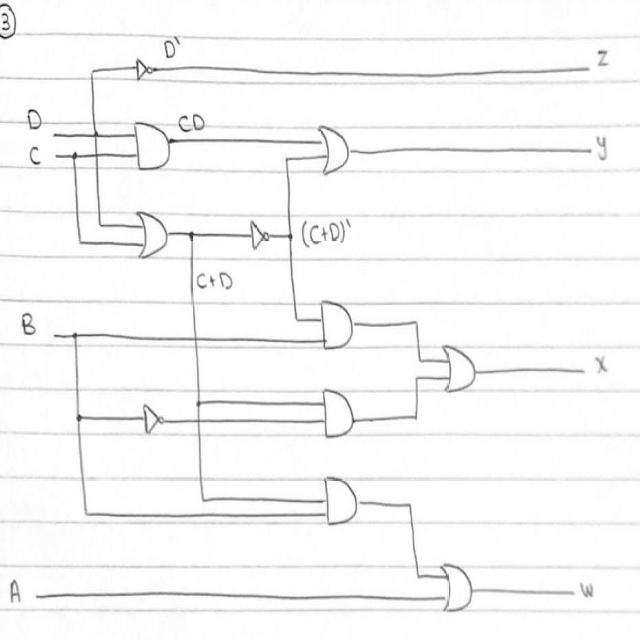 3
D'
z
D
CD
C
y
(C+D)'
C+D
B
x
A
w